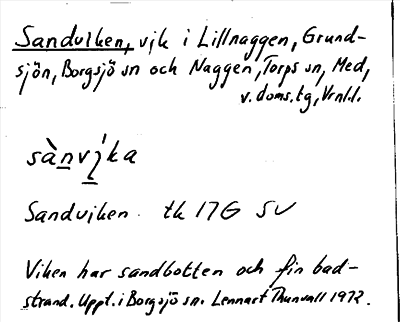 Sandviken, vik i Lillnaggen, Grund-
sjön, Borgsjö sn och Naggen, Torps sn, Med,
v. doms.tg, Vrnl.l.
sànvi̱ka
Sandviken tk 17G SV
Viken har sandbotten och fin bad-
strand. Uppt. i Borgsjö sn. Lennart Thunvall 1972.